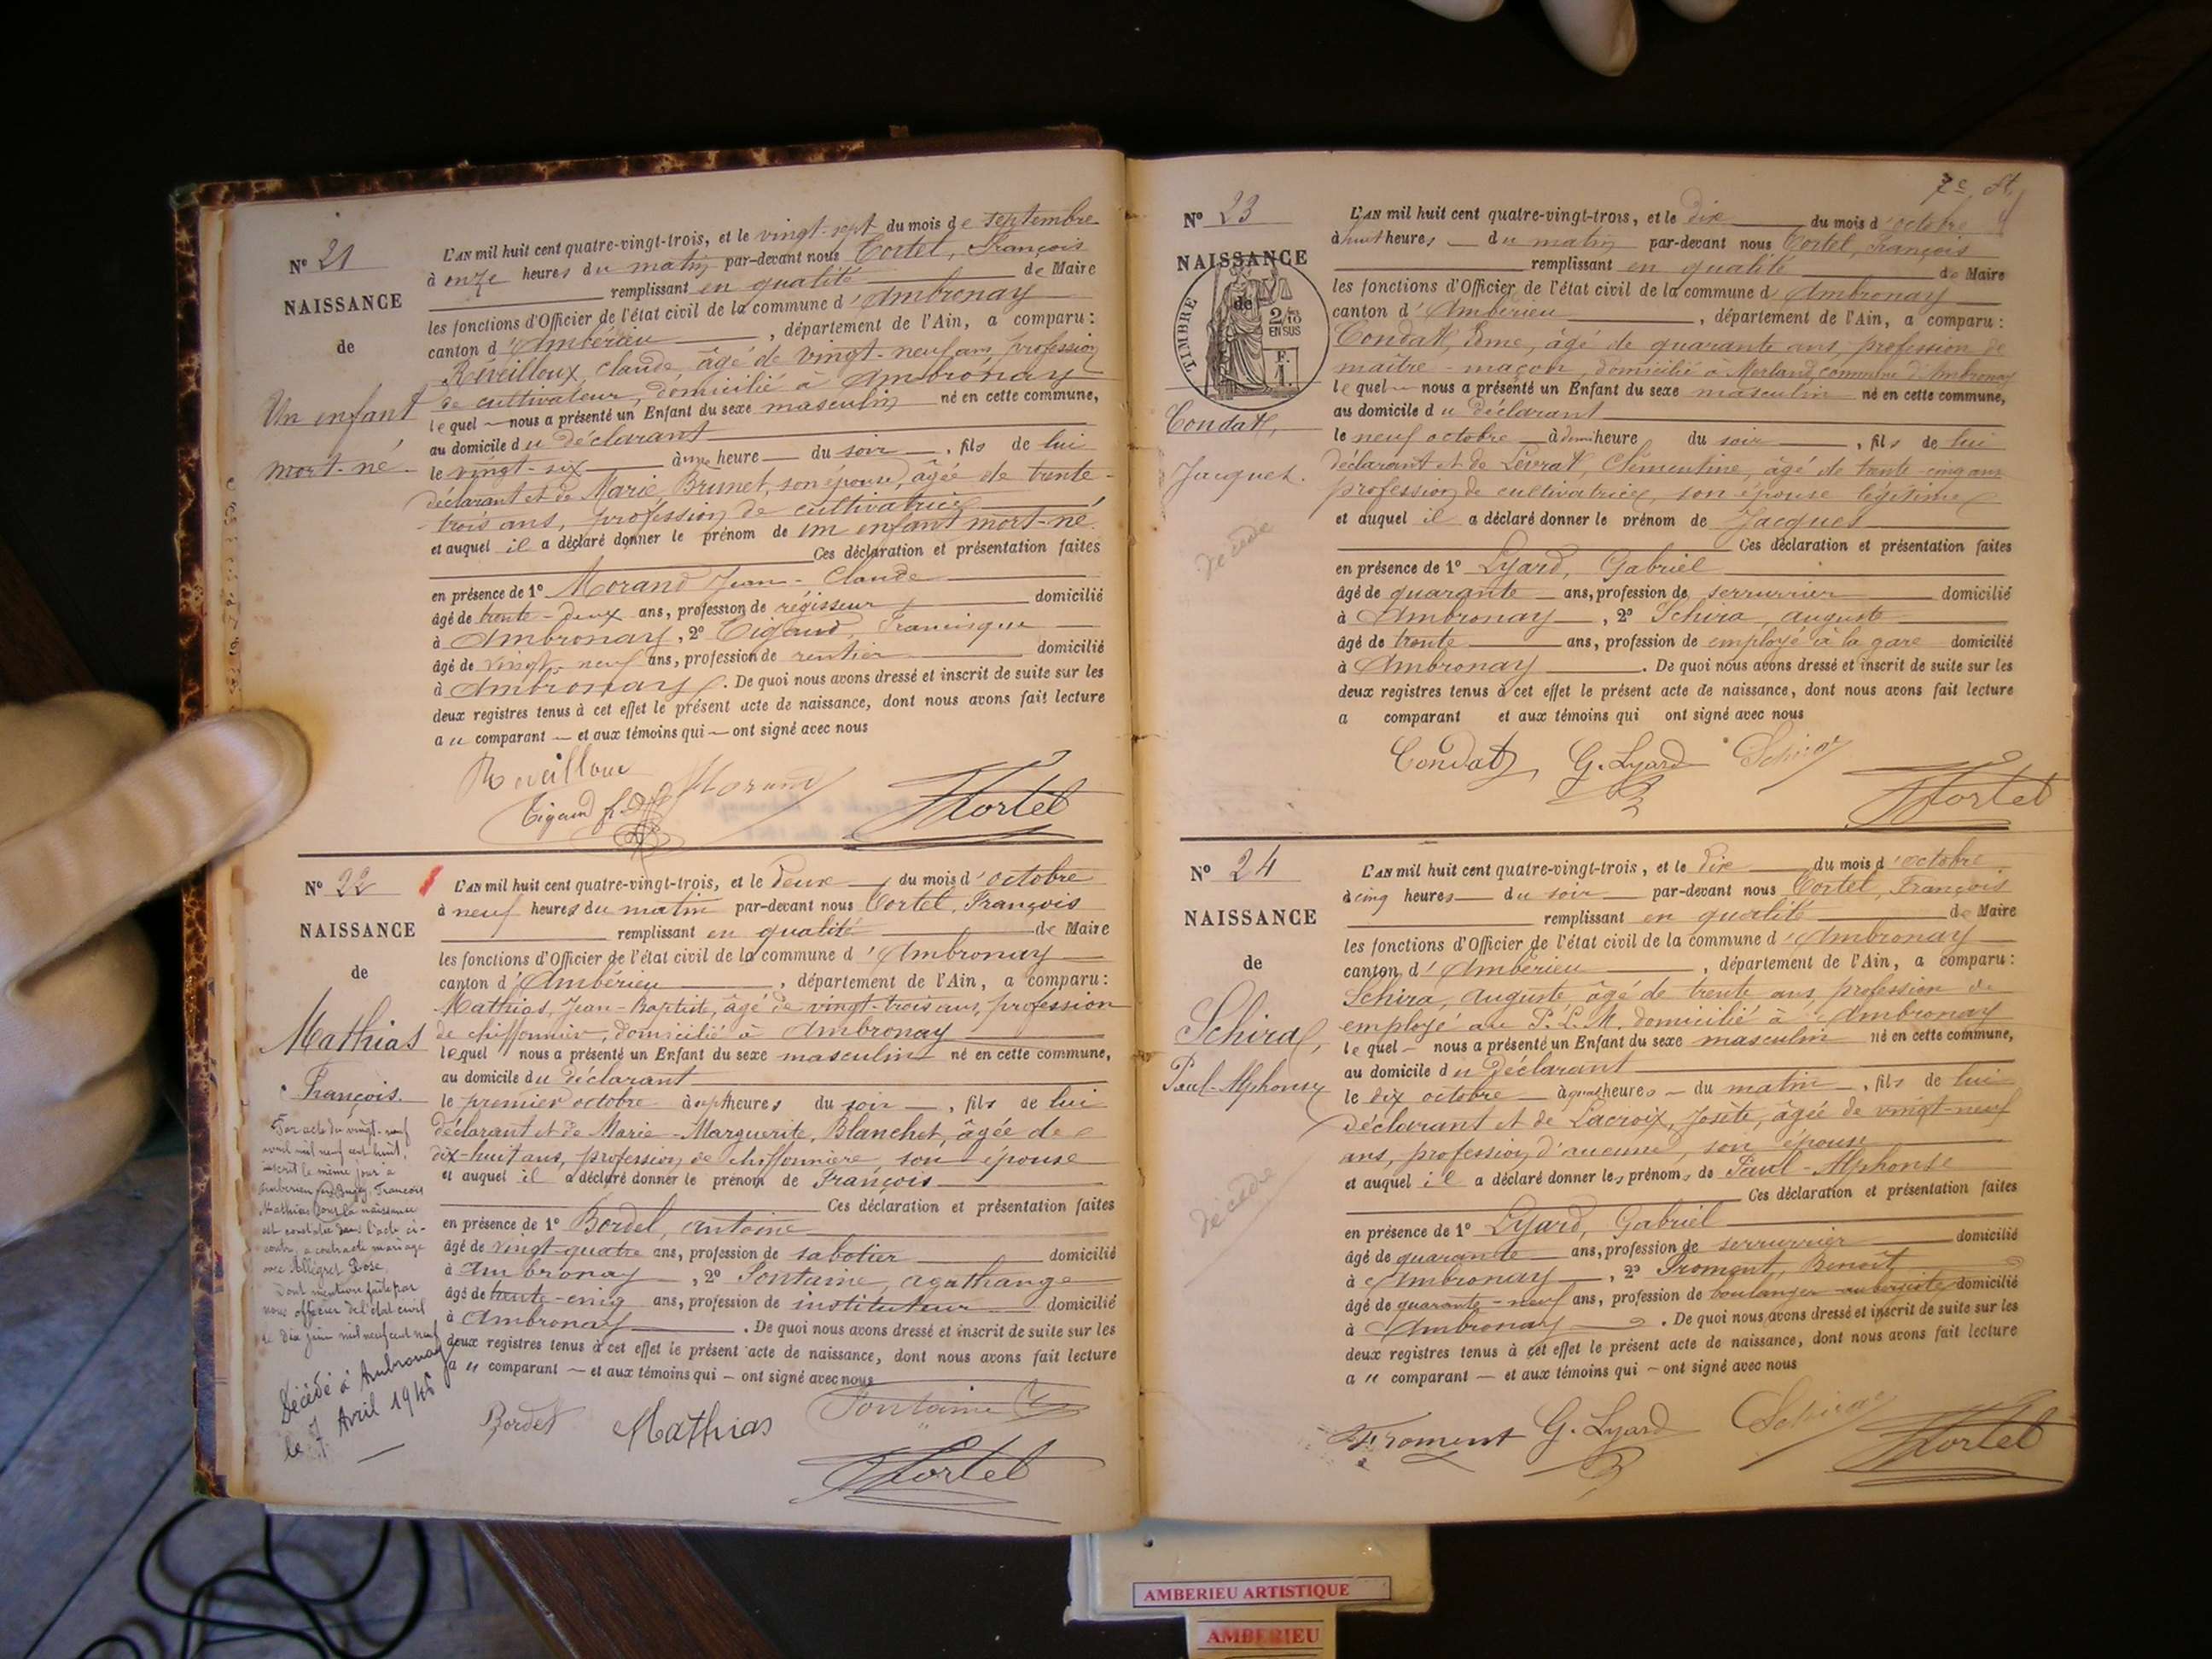 Nº 21
NAISSANCE
de
Un enfant
mort-né
L'AN mil huit cent quatre-vingt-trois, et le vingt-sept du mois de septembre
à onze heures du matin par-devant nous Tortel, François
remplissant en qualité de Maire
les fonctions d'Officier de l'état civil de la commune d'Ambronay
canton d'Ambérieu, département de l'Ain, a comparu:
Réveilloux, Claude âgé de vingt-neuf ans, profession
de cultivateur, domicilié à Ambronay
lequel nous a présenté un Enfant du sexe masculin né en cette commune,
au domicile du déclarant
le vingt-six à une heure du soir, fils de lui
déclarant et de Marie Brunet, son épouse, âgée de trente-
trois ans, profession de cultivatrice
et auquel il a déclaré donner le prénom de un enfant mort-né.
Ces déclaration et présentation faites
en présence de 1º Morand Jean-Claude
âgé de trente-deux ans, profession de régisseur domicilié
à Ambronay, 2º Tigaud, Francisque
âgé de vingt-neuf ans, profession de rentier domicilié
à Ambronay. De quoi nous avons dressé et inscrit de suite sur les
deux registres tenus à cet effet le présent acte de naissance, dont nous avons fait lecture
au comparant et aux témoins qui ont signé avec nous
Reveilloux Morand
Tigaud Tortel
Nº 22
NAISSANCE
de
Mathias
François.
Par acte du vingt-neuf
avril mil neuf cent huit,
inscrit le même jour à
Ambérieu en Bugey, François
Mathias dont la naissance
est constatée dans l'acte ci-
contre, a contracté mariage
avec Allégret Rose.
Dont mention faite par
nous officier de l'état civil
le dix juin mil neuf cent neuf
Décédé à Ambronay
le 7 Avril 1945
L'AN mil huit cent quatre-vingt-trois, et le deux du mois d'octobre
à neuf heures du matin par-devant nous Tortel, François
remplissant en qualité de Maire
les fonctions d'Officier de l'état civil de la commune d'Ambronay
canton d'Ambérieu, département de l'Ain, a comparu:
Mathias, Jean-Baptiste, âgé de vingt-trois ans, profession
de chiffonnier, domicilié à Ambronay
lequel nous a présenté un Enfant du sexe masculin né en cette commune,
au domicile du déclarant
le premier octobre à sept heures du soir, fils de lui
déclarant et de Marie-Marguerite, Blanchet, âgée de
dix-huit ans, profession de chiffonnière, son épouse
et auquel il a déclaré donner le prénom de François
Ces déclaration et présentation faites
en présence de 1º Bordel, Antoine
âgé de vingt-quatre ans, profession de sabotier domicilié
à Ambronay, 2º Fontaine, Agathange
âgé de trente-cinq ans, profession de instituteur domicilié
à Ambronay. De quoi nous avons dressé et inscrit de suite sur les
deux registres tenus à cet effet le présent acte de naissance, dont nous avons fait lecture
au comparant et aux témoins qui ont signé avec nous
Bordel Mathias Fontaine
Tortel
7e
Nº 23
NAISSANCE
de
TIMBRE
2/10
EN SUS
F.
1.
Condat,
Jacques.
décédé
L'AN mil huit cent quatre-vingt-trois, et le dix du mois d'octobre
à huit heures du matin par-devant nous Tortel, François
remplissant en qualité de Maire
les fonctions d'Officier de l'état civil de la commune d'Ambronay
canton d'Ambérieu, département de l'Ain, a comparu:
Condat, Edme, âgé de quarante ans, profession de
maître-maçon, domicilié à Merland, commune d'Ambronay
lequel nous a présenté un Enfant du sexe masculin né en cette commune,
au domicile du déclarant
le neuf octobre à demi heure du soir, fils de lui
déclarant et de Levrat, Clémentine, âgé de trente-cinq ans
profession de cultivatrice, son épouse légitime
et auquel il a déclaré donner le prénom de Jacques
Ces déclaration et présentation faites
en présence de 1º Lyard, Gabriel
âgé de quarante ans, profession de serrurrier domicilié
à Ambronay, 2º Schira, Auguste
âgé de trente ans, profession de employé à la gare domicilié
à Ambronay. De quoi nous avons dressé et inscrit de suite sur les
deux registres tenus à cet effet le présent acte de naissance, dont nous avons fait lecture
a comparant et aux témoins qui ont signé avec nous
Condat G. Lyard Schira
Tortel
Nº 24
NAISSANCE
de
Schira,
Paul-Alphonse
décédé
L'AN mil huit cent quatre-vingt-trois, et le dix du mois d'octobre
à cinq heures du soir par-devant nous Tortel, François
remplissant en qualité de Maire
les fonctions d'Officier de l'état civil de la commune d'Ambronay
canton d'Ambérieu, département de l'Ain, a comparu:
Schira, Auguste âgé de trente ans, profession de
employé au P.L.M. domicilié à Ambronay
lequel nous a présenté un Enfant du sexe masculin né en cette commune,
au domicile du déclarant
le dix octobre à quatre heures du matin, fils de lui
déclarant et de Lacroix, Josète, âgée de vingt-neuf
ans, profession d'aucune, son épouse
et auquel il a déclaré donner les prénoms de Paul-Alphonse
Ces déclaration et présentation faites
en présence de 1º Lyard, Gabriel
âgé de quarante ans, profession de serrurrier domicilié
à Ambronay, 2º Froment, Benoît
âgé de quarante-neuf ans, profession de boulanger-aubergiste domicilié
à Ambronay. De quoi nous avons dressé et inscrit de suite sur les
deux registres tenus à cet effet le présent acte de naissance, dont nous avons fait lecture
au comparant et aux témoins qui ont signé avec nous
Froment G. Lyard Schira
Tortel
AMBERIEU ARTISTIQUE
AMBERIEU